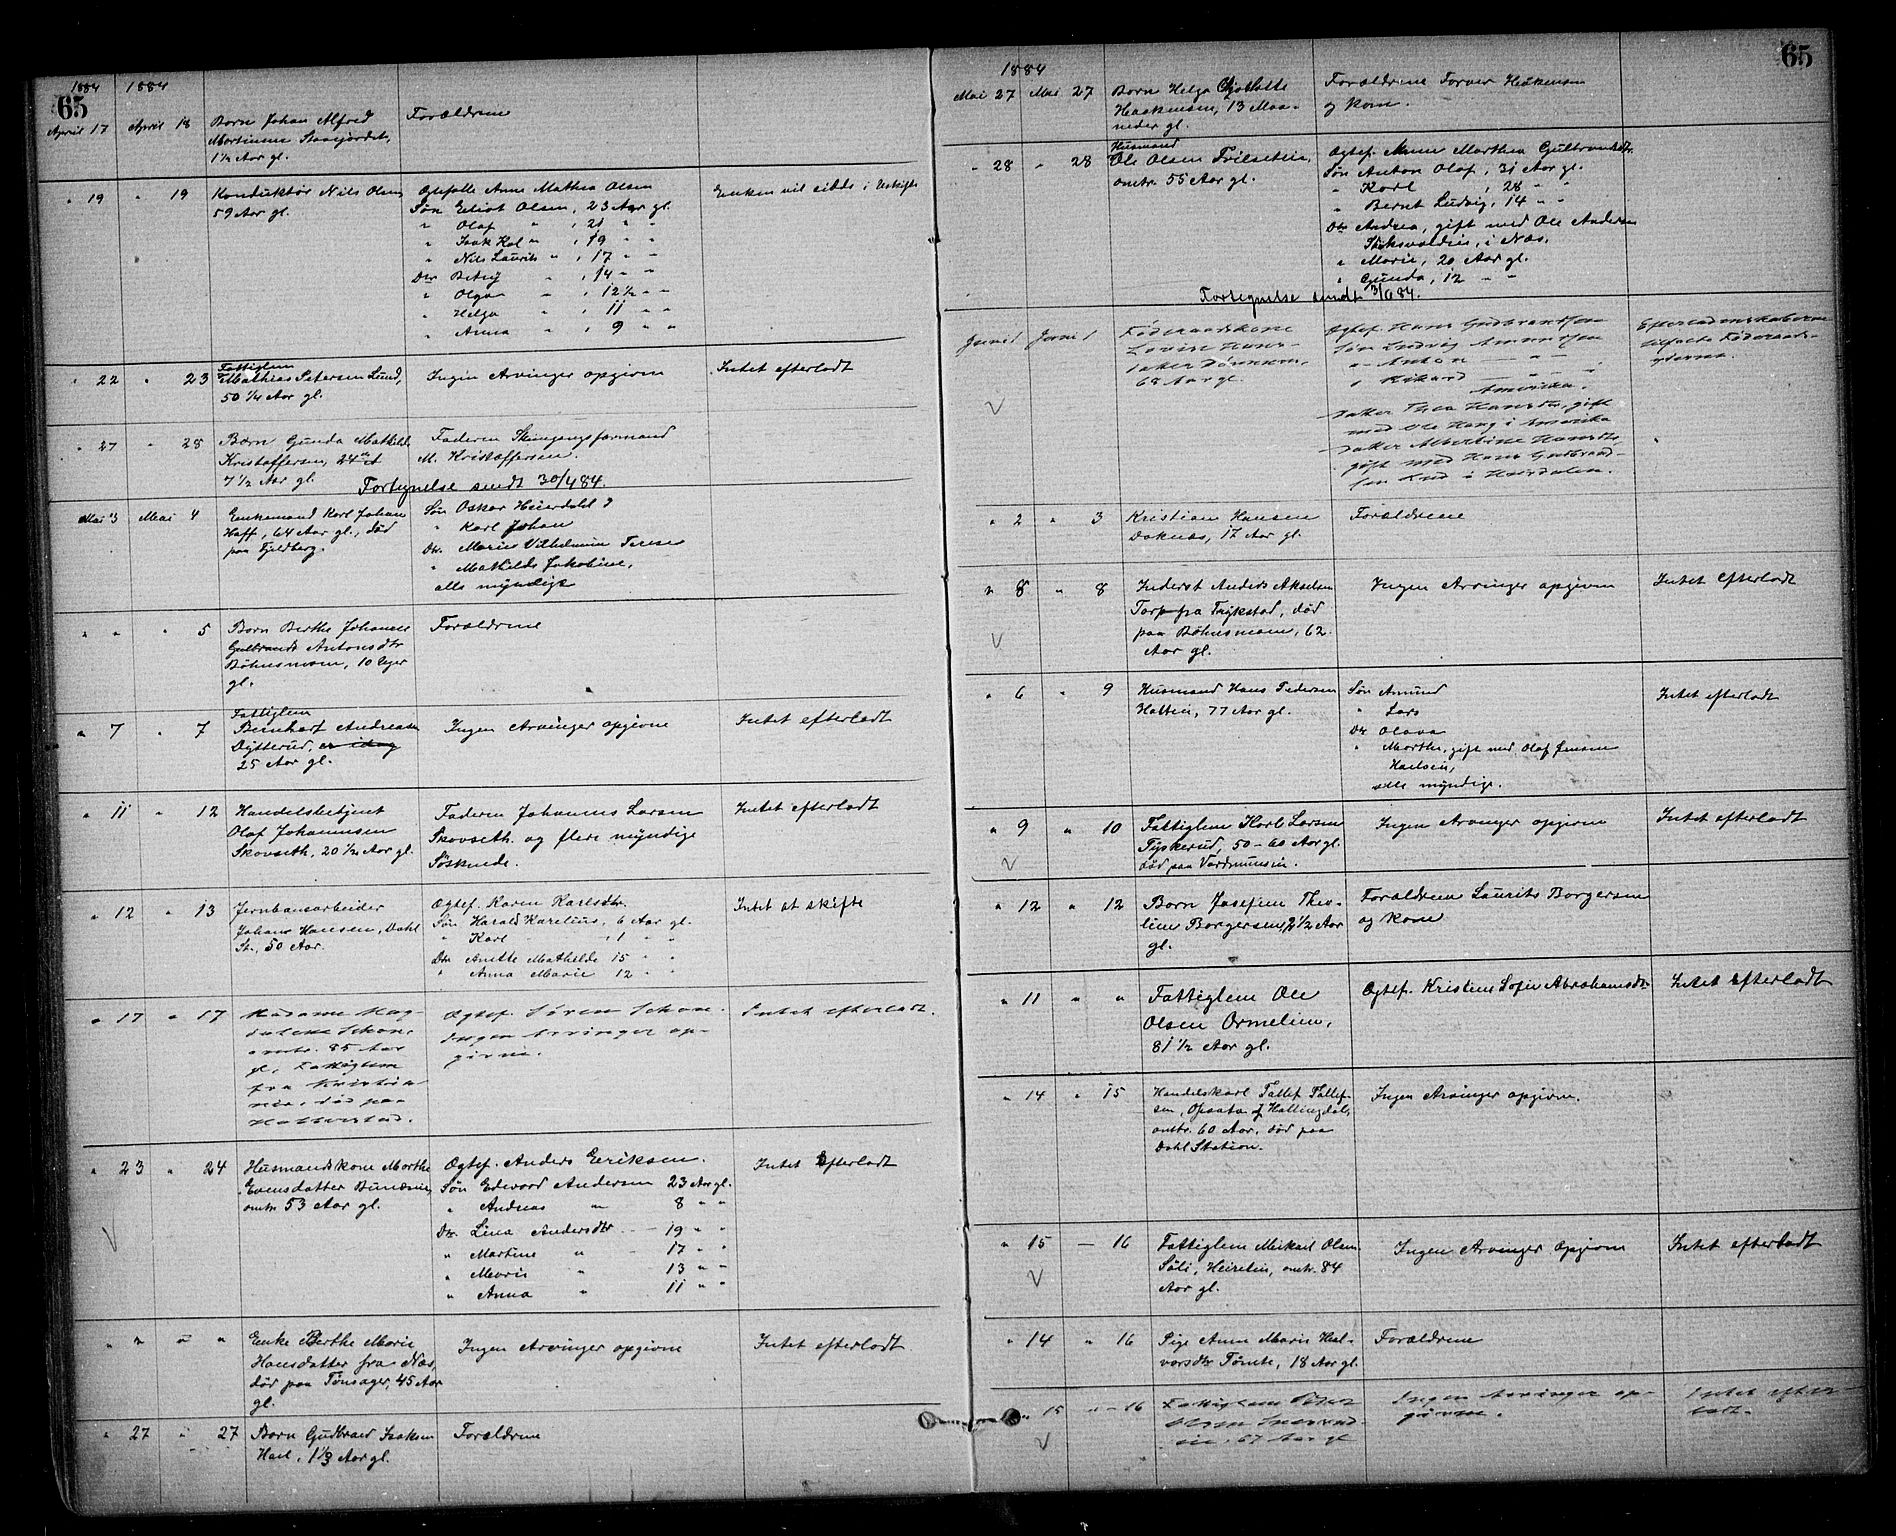 65
1884 1884
April 17 April 18 Barn Johan Alfred Forældrene
Mortinsen
1½ Aar gl.
" 19 " 19 Konduktør Nils Olsen, Ogtefolle Anne Mathea Olsen Enken vil sidde i Uskifte
59 Aar gl. Søn Eliot Olsen, 23 Aar gl.
" Olaf " , 21 " "
" Isak Kol " , 19 " "
" Nils Laurits " , 17 " "
Dtr. Betsy " , 14 " "
" Olga " , 12½ " "
" Helga " , 11 " "
" Anna " , 9 " "
" 22 " 23 Fattiglem
Mathias Petersen Lund, Ingen Arvinger opgivne Intet efterladt
50 ¼ Aar gl.
" 27 " 28 Barn Gunda Mathilde Faderen Stengangsformand
Kristoffersen, M. Kristoffersen.
7½ Aar gl.
Fortegnelse sendt 30/4 84.
Mai 3 Mai 4 Enkemand Karl Johan Søn Oskar Heierdahl ?
Haff, 64 Aar gl., død " Karl Johan
paa Fjeldberg. Dtr. Marie Vilhelmine Terese
" Mathilde Jakobine,
alle myndige
" " " 5 Barn Berthe Johanne Forældrene
Gulbrand Antonsdtr
Bøhnsmoen, 10 Uger
gl.
" 7 " 7 Fattiglem
Bernhart Andreas Ingen Arvinger opgivne Intet efterladt
Dytterud, er idag
25 Aar gl.
" 11 " 12 Handelsbetjent Faderen Johannes Larsen Intet efterladt
Olaf Johannesen Skovseth og flere myndige
Skovseth, 20½ Aar gl. Søskende.
" 12 " 13 Jernbanearbeider Ogtef. Karen Karlsdtr. Intet at skifte
Johan Hansen, Dahl Søn Harald Karelius, 6 Aar gl.
St., 50 Aar. " Karl , 1 " "
Dtr. Anette Mathilde 15 " "
" Anna Marie 12 " "
" 17 " 17 Madame Mag- Ogtef. Søren Schon. Intet efterladt.
dalene Schon, Ingen Arvinger op-
omtr. 85 Aar givne.
gl., Fattiglem
fra Kristia-
nia, død paa
" 23 " 24 Husmandskone Marthe Ogtef. Anders Eriksen. Intet Efterladt
Evensdatter Bundsein, Søn Edvard Andersen 23 Aar gl.
omtr 53 Aar gl. " Andreas " 8 " "
Dtr. Lina Andersdtr. 19 " "
" Martine " 17 " "
" Marie " 13 " "
" Anna " 11 " "
" " " " Enke Berthe Marie Ingen Arvinger opgivne Intet efterladt
Hansdatter fra Næs,
død paa Tønsager, 45 Aar
gl.
" 27 " 27 Barn Gudbrand Isaksen Forældrene
Hael, 1⅓ Aar gl.
65
1884
Mai 27 Mai 27 Barn Helga Charlotte Forældrene Forvar Haakensen
Haakensen, 13 Maa- og Kone.
neder gl.
" 28 " 28 Husmand
Ole Olsen Trilsetein, Ogtef. Anne Marthea Gulbrandsdtr.
omtr. 55 Aar gl. Søn Anton Olaf, 31 Aar gl.
" Karl , 28 " "
" Bernt Ludvig, 14 " "
Dtr Andrea, gift med Ole Andersen
i Næs,
" Marie, 20 Aar gl.
" Gunda, 12 " "
Fortegnelse sendt 3/6 84.
Juni 1 Juni 1 Føderaadskone Ogtef. Hans Gudbrandsen Efterladenskaberne
Lovise Hans- Søn Ludvig tilfaldt Føderaads-
datter " Anton — " — yderne.
68 Aar gl. " Rikard — " —
Amerika.
Datter Thea Hansdtr, gift
med Ole Haug i Amerika
Datter Albertine Hansdtr,
gift med Hans Gudbrand-
sen Lund i Hurdalen.
" 2 " 3 Kristian Hansen Forældrene
Doknæs, 17 Aar gl.
" 8 " 8 Inderst Anders Akselsen Ingen Arvinger opgivne Intet Efterladt
Torp fra Trykstad, død
paa Bøhnsmoen, 62
Aar gl.
" 6 " 9 Husmand Hans Pedersen Søn Amund Intet efterladt
Hatten, 77 Aar gl. " Lars
Dtr. Olava
" Marthe, gift med Olaf Jensen
alle myndige.
" 9 " 10 Fattiglem Karl Larsen Ingen Arvinger opgivne Intet efterladt
Tyskerud, 50-60 Aar gl.
død paa Vardmunsin.
" 12 " 12 Barn Josefine Theo- Forældrene Laurits Borgersen
line Borgersen, 2½ Aar og Kone
gl.
" 11 " " Fattiglem Ole Ogtef. Kristine Sofie Abrahamsdtr Intet efterladt
Olsen Ormelien,
81½ Aar gl.
" 14 " 15 Handelskarl Tollef Tollef- Ingen Arvinger opgivne.
sen, Opsata af Hallingdal,
omtr. 60 Aar, død paa
Dahl Station.
" 15 — 16 Fattiglem Mikael Olsen Ingen Arvinger opgivne Intet efterladt
Søli, Heirelien, omtr. 84
Aar gl.
" 14 " 16 Pige Anne Marie Hal- Forældrene
vorsdtr Tømte, 18 Aar gl.
" 15 " 16 Fattiglem Peter Ingen Arvinger op- Intet efter-
Olsen givne. ladt.
67 Aar gl